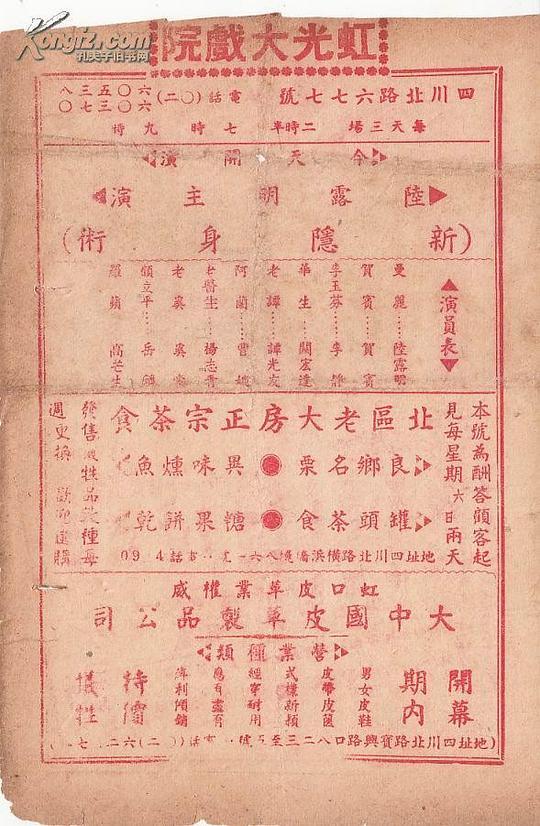 Kongfz.com
孔夫子旧书网
虹光大戲院
四川北路六七七號 電話(〇二)六〇五三八
六〇三七〇
每天三場 二時半 七時 九時
今天開演
陸露明主演
(新隱身術)
演員表
曼麗……陸露明
賀賓……賀賓
李玉芬……李靜
華生……關宏達
老譚……譚光友
阿蘭……曹娥
老醫生……楊志卿
老吳……吳寒
顧立平……岳麟
羅蘋……高芒生
北區老大房正宗茶食
良鄉名栗 異味燻魚
罐頭茶食 糖果餅乾
地址四川北路橫浜橋
本號為酬答顧客起
見每星期六日兩天
發售犧牲品幾種每
週更換 歡迎選購
虹口皮革業權威
大中國皮革製品公司
營業種類
開幕
期內
男女皮鞋
皮帶皮篋
式樣新穎
經穿耐用
應有盡有
薄利傾銷
特價
犧牲
(地址四川北路寶興路口八二三至五號